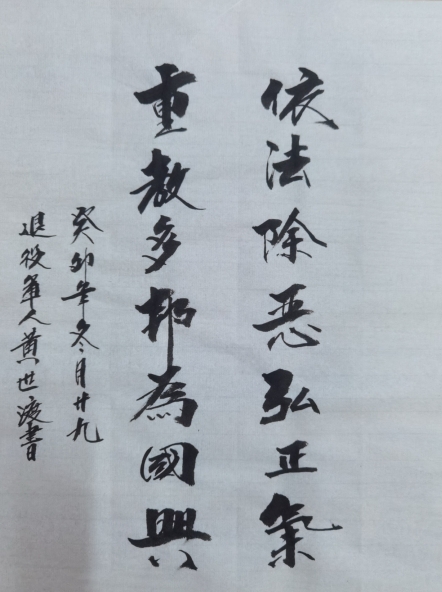 依法除恶弘正氣
重教多邦為國興
癸卯年冬月廿九
退役軍人黄世渡書